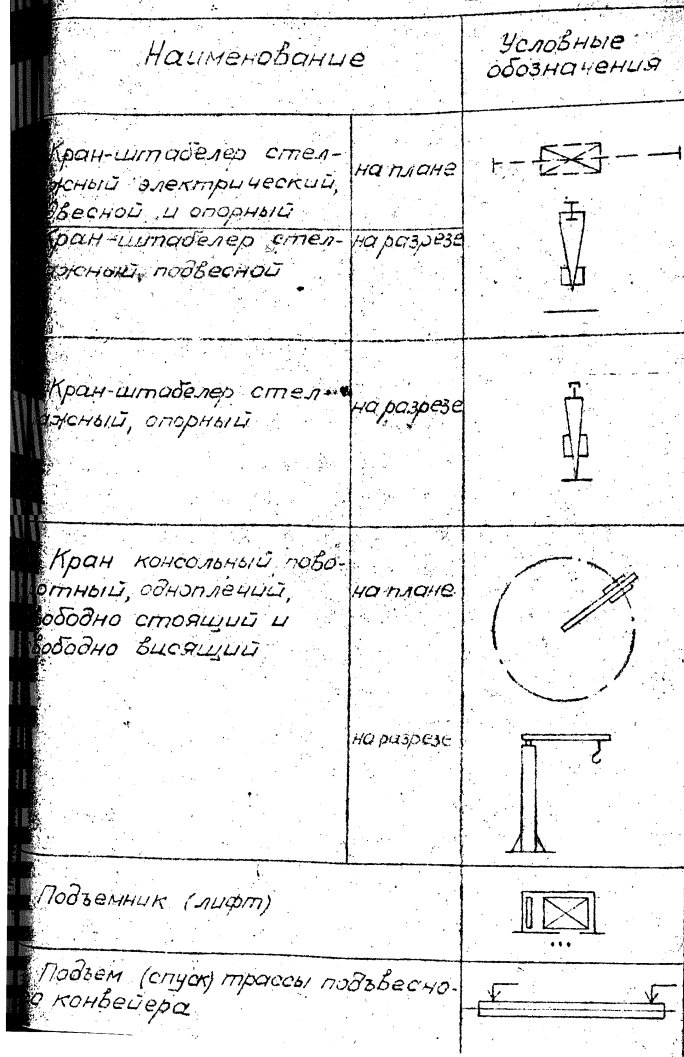 Наименование
Условные
обозначения
Кран-штабелер стел-
жный электрический,
двесной и опорный
на плане
Кран-штабелер стел-
ажный, подвесной
на разрезе
Кран-штабелер стел-
ажный, опорный
на разрезе
Кран консольный пово-
отный, одноплечий,
вободно стоящий и
вободно висящий
на плане
на разрезе
Подъемник (лифт)
Подъем (спуск) трассы подъвесно-
о конвейера